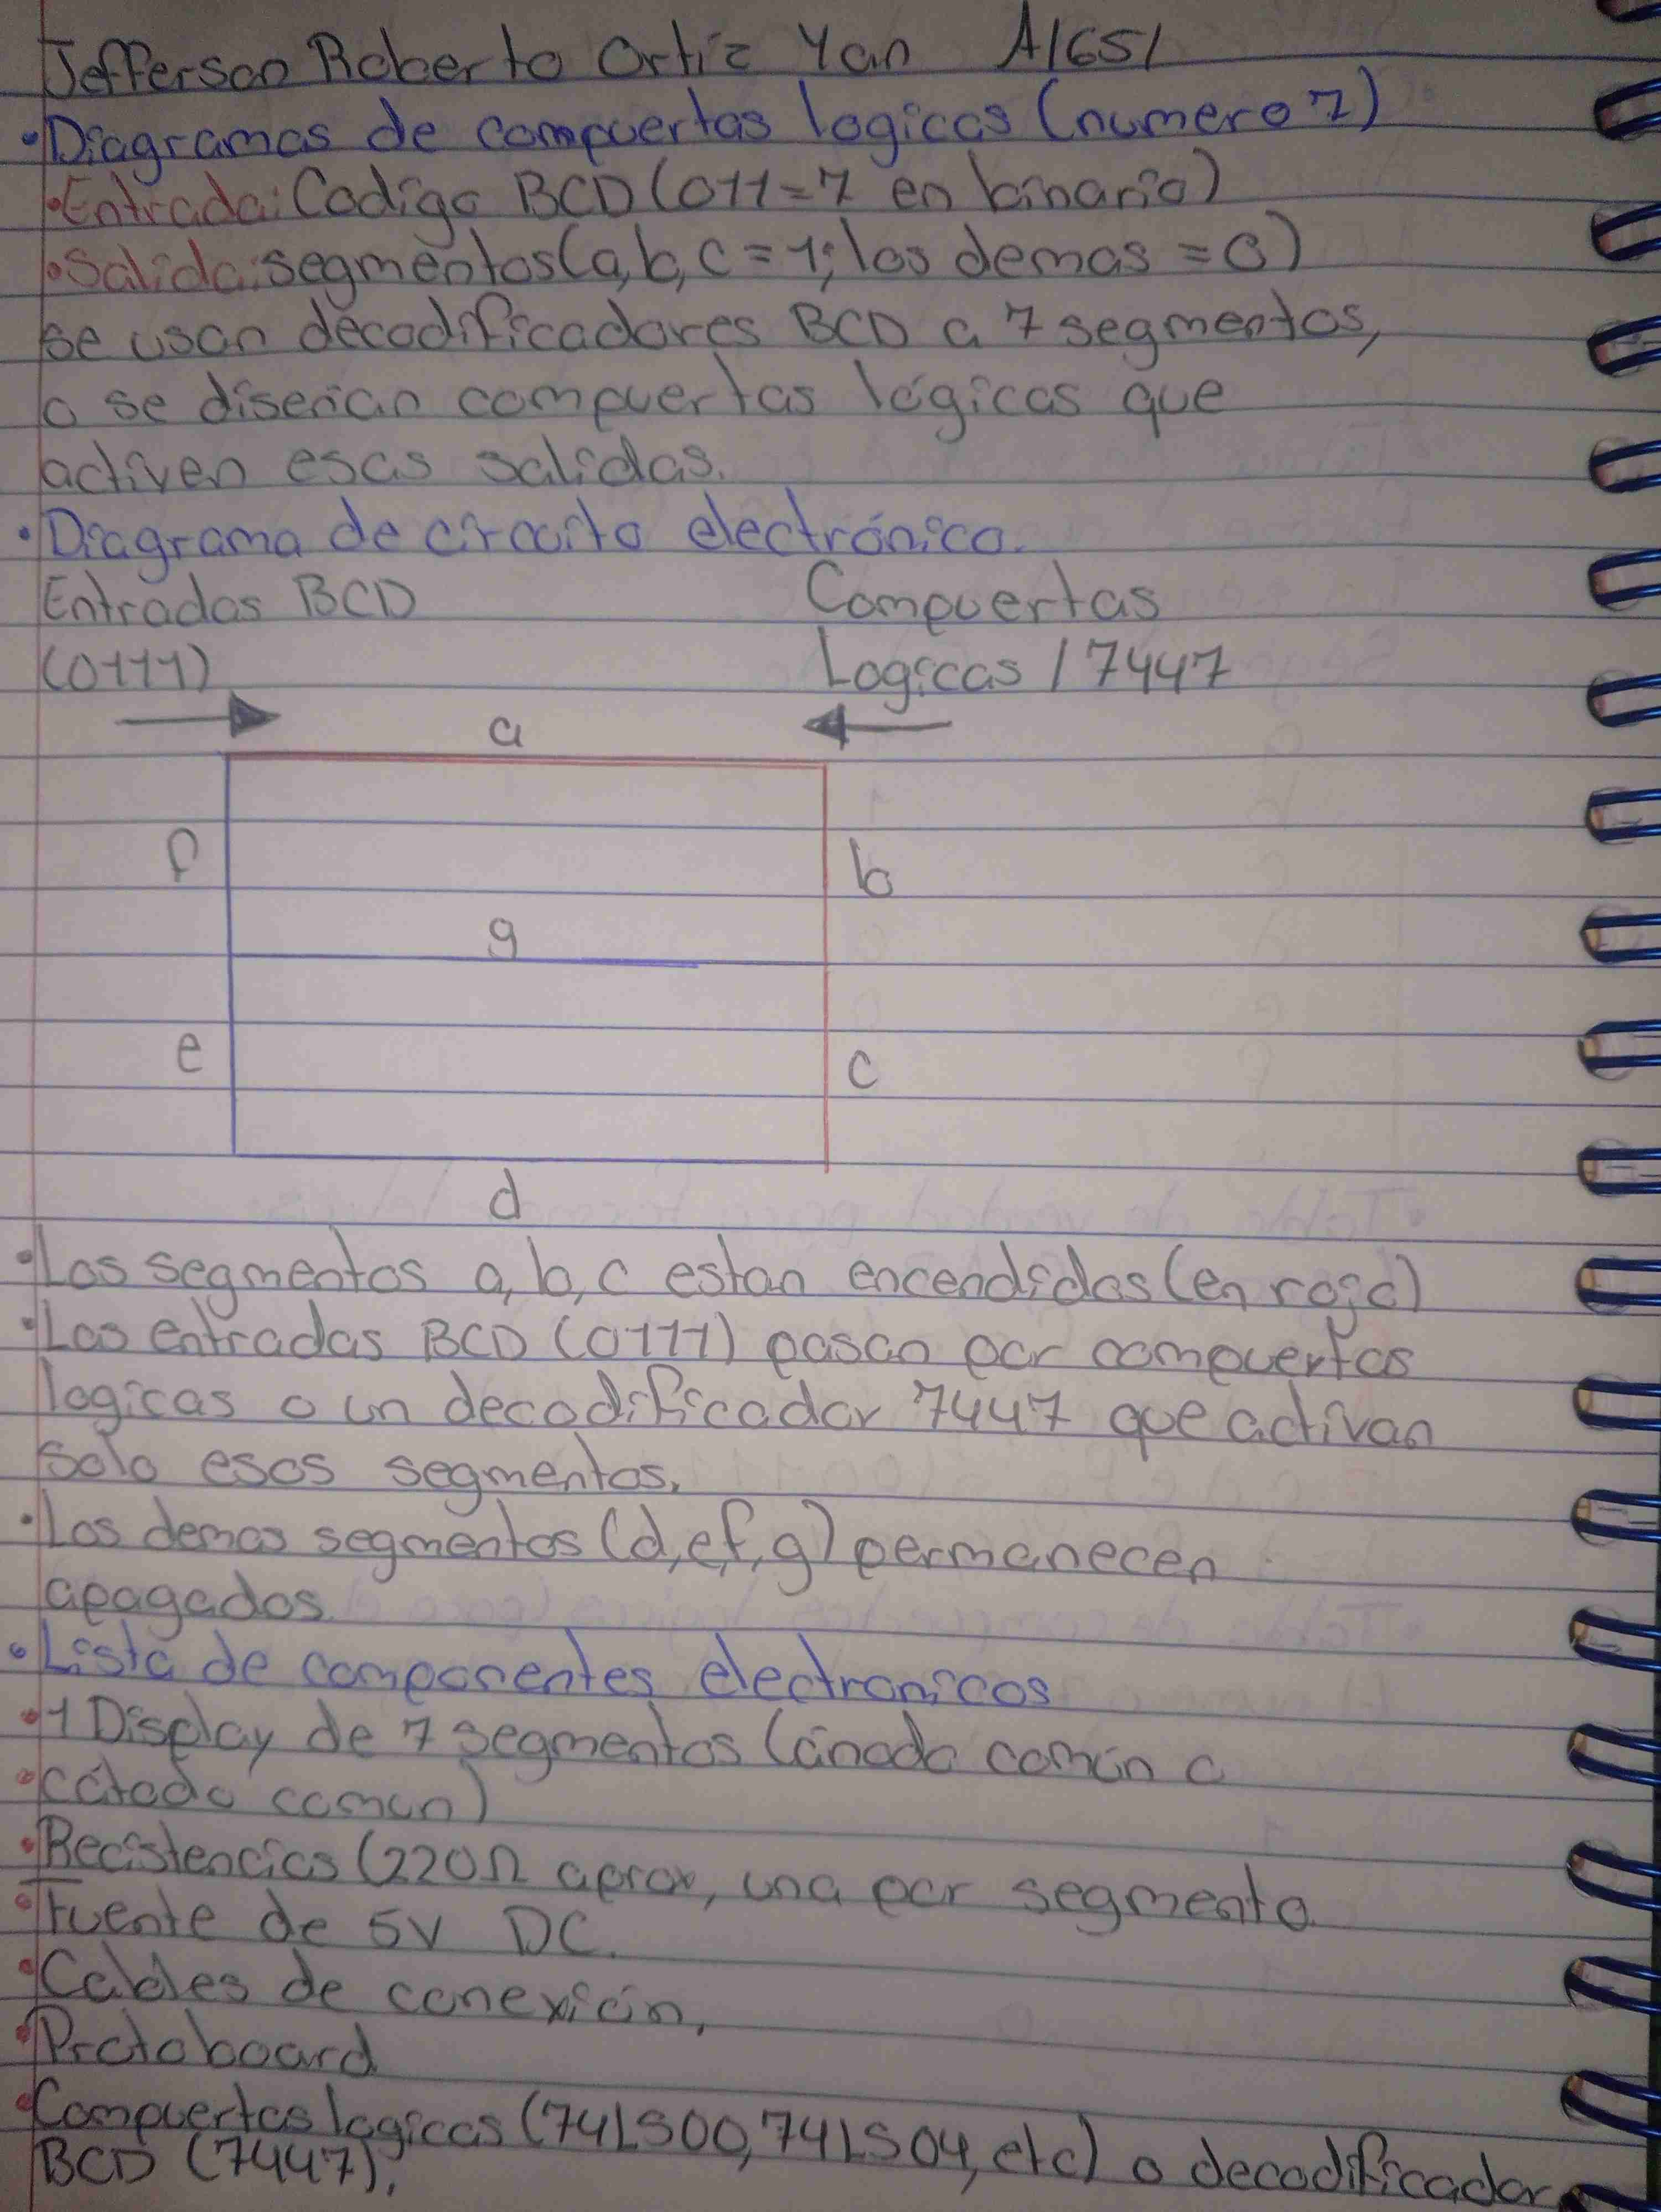 Jefferson Roberto Ortiz Yan A1651
•Diagramas de compuertas logicas (numero 7)
•Entrada: Codigo BCD (011=7 en binario)
•Salida: segmentos (a, b, c = 1; los demas = 0)
se usan decodificadores BCD a 7 segmentos,
o se diseñan compuertas lógicas que
activen esas salidas.
•Diagrama de circuito electrónico.
Entradas BCD Compuertas
(0111) Logicas / 7447
a
f b
g
e c
d
•Los segmentos a, b, c estan encendidos (en rojo)
•Las entradas BCD (0111) pasan por compuertas
logicas o un decodificador 7447 que activan
solo esos segmentos.
•Los demas segmentos (d, e, f, g) permanecen
apagados.
•Lista de componentes electronicos
•1 Display de 7 segmentos (ánodo común o
•cátodo comun)
•Recistencias (220Ω aprox, una por segmento.
•Fuente de 5V DC.
•Cables de conexión,
•Protoboard
•Compuertas logicas (74LS00, 74LS04, etc) o decodificador
BCD (7447).